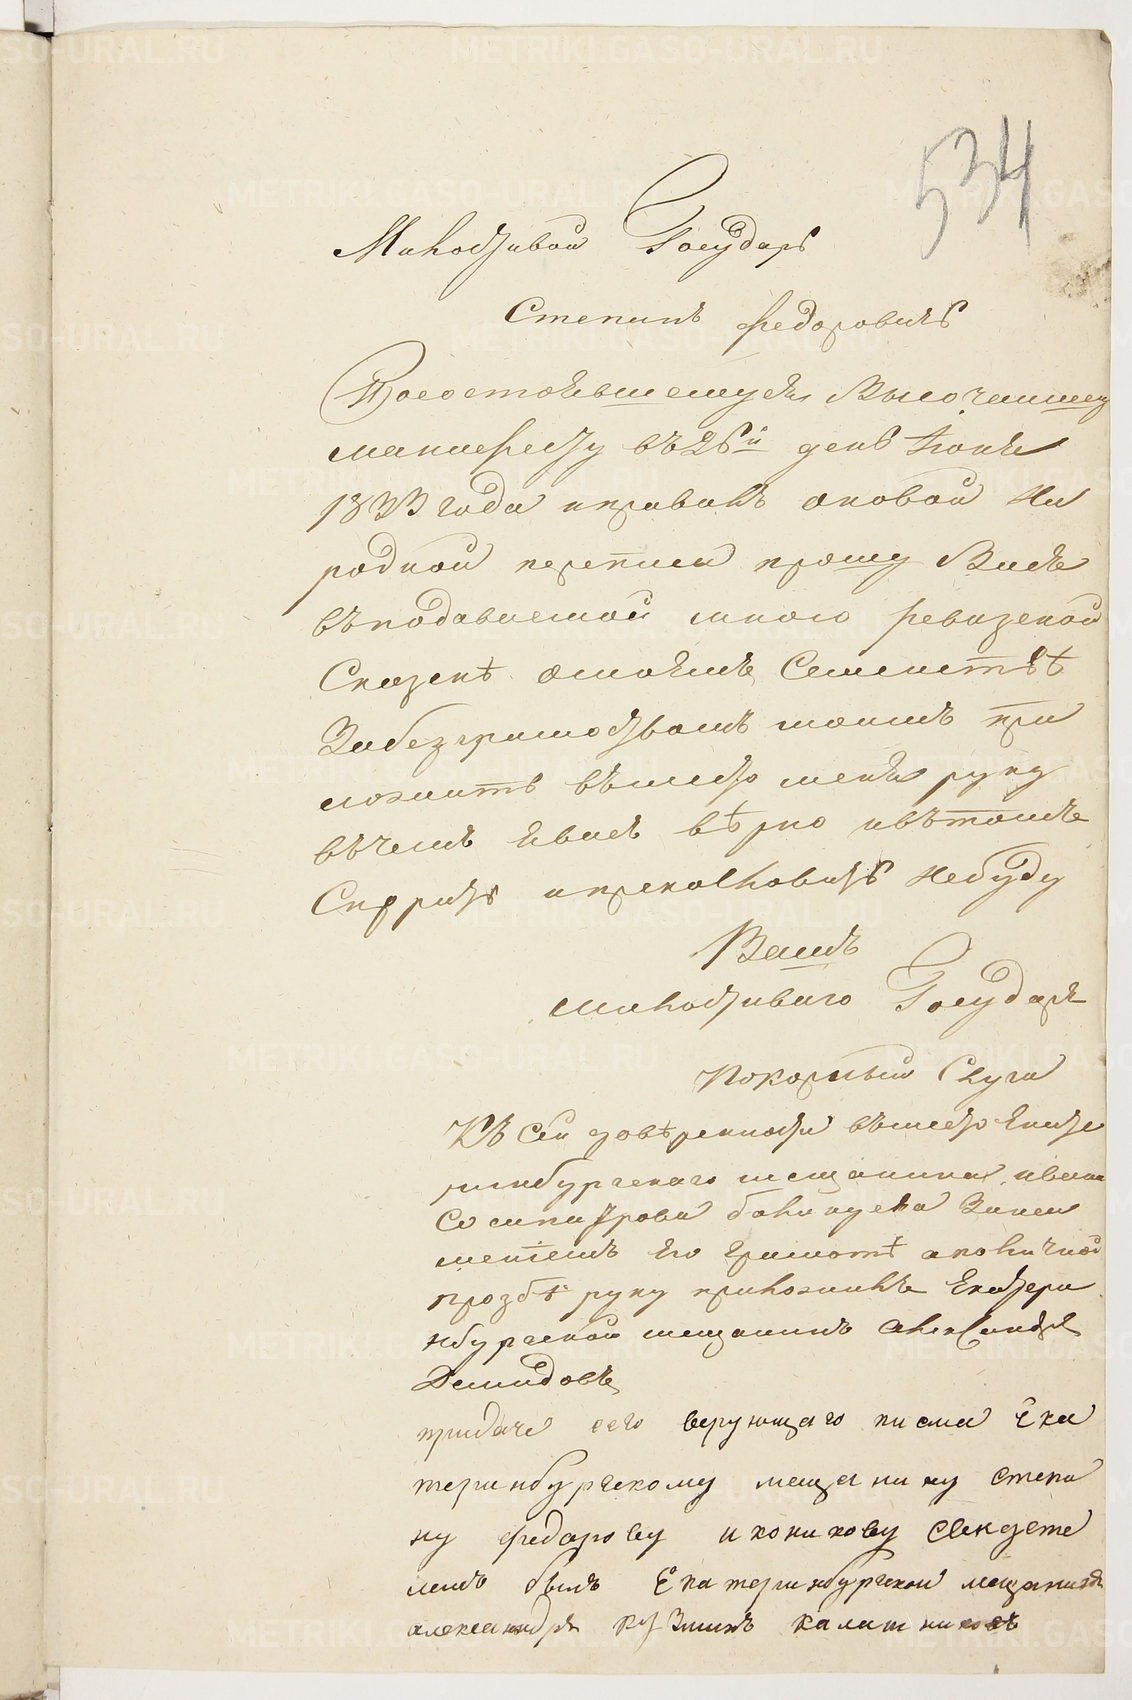 534
Милостивой Государь
Степанъ Федоровичь
Посостоявшемуся Высочаишему
манифесту въ 16й день Июня
1833 года и правилъ оновой На
родной переписи прошу Васъ
въподаваемой мною ревизской
Сказкѣ о моемъ Семействѣ
Забезграмотвомъ моимъ при
ложить вместо меня руку
въчемъ явамъ вѣрю ивътомъ
Спорить ипрекословить Небуду
Вашъ
милостиваго Государя
Покорный Слуга
Къ сей довѣренности вместо Екате
ринбургскаго мещанина ивана
Сосипатрова Неуме
ниемъ его Грамотѣ аполичной
прозбѣ руку приложилъ Екатери
нбургской мещанинъ александръ
Демидовъ
придаче сего верующаго писма Ека
теринбургскому мещанину степа
ну федорову иконикову свидете
лемъ былъ Екатеринбургкой мещанинъ
александръ Калашниковъ
METRIKI.GASO-URAL.RU